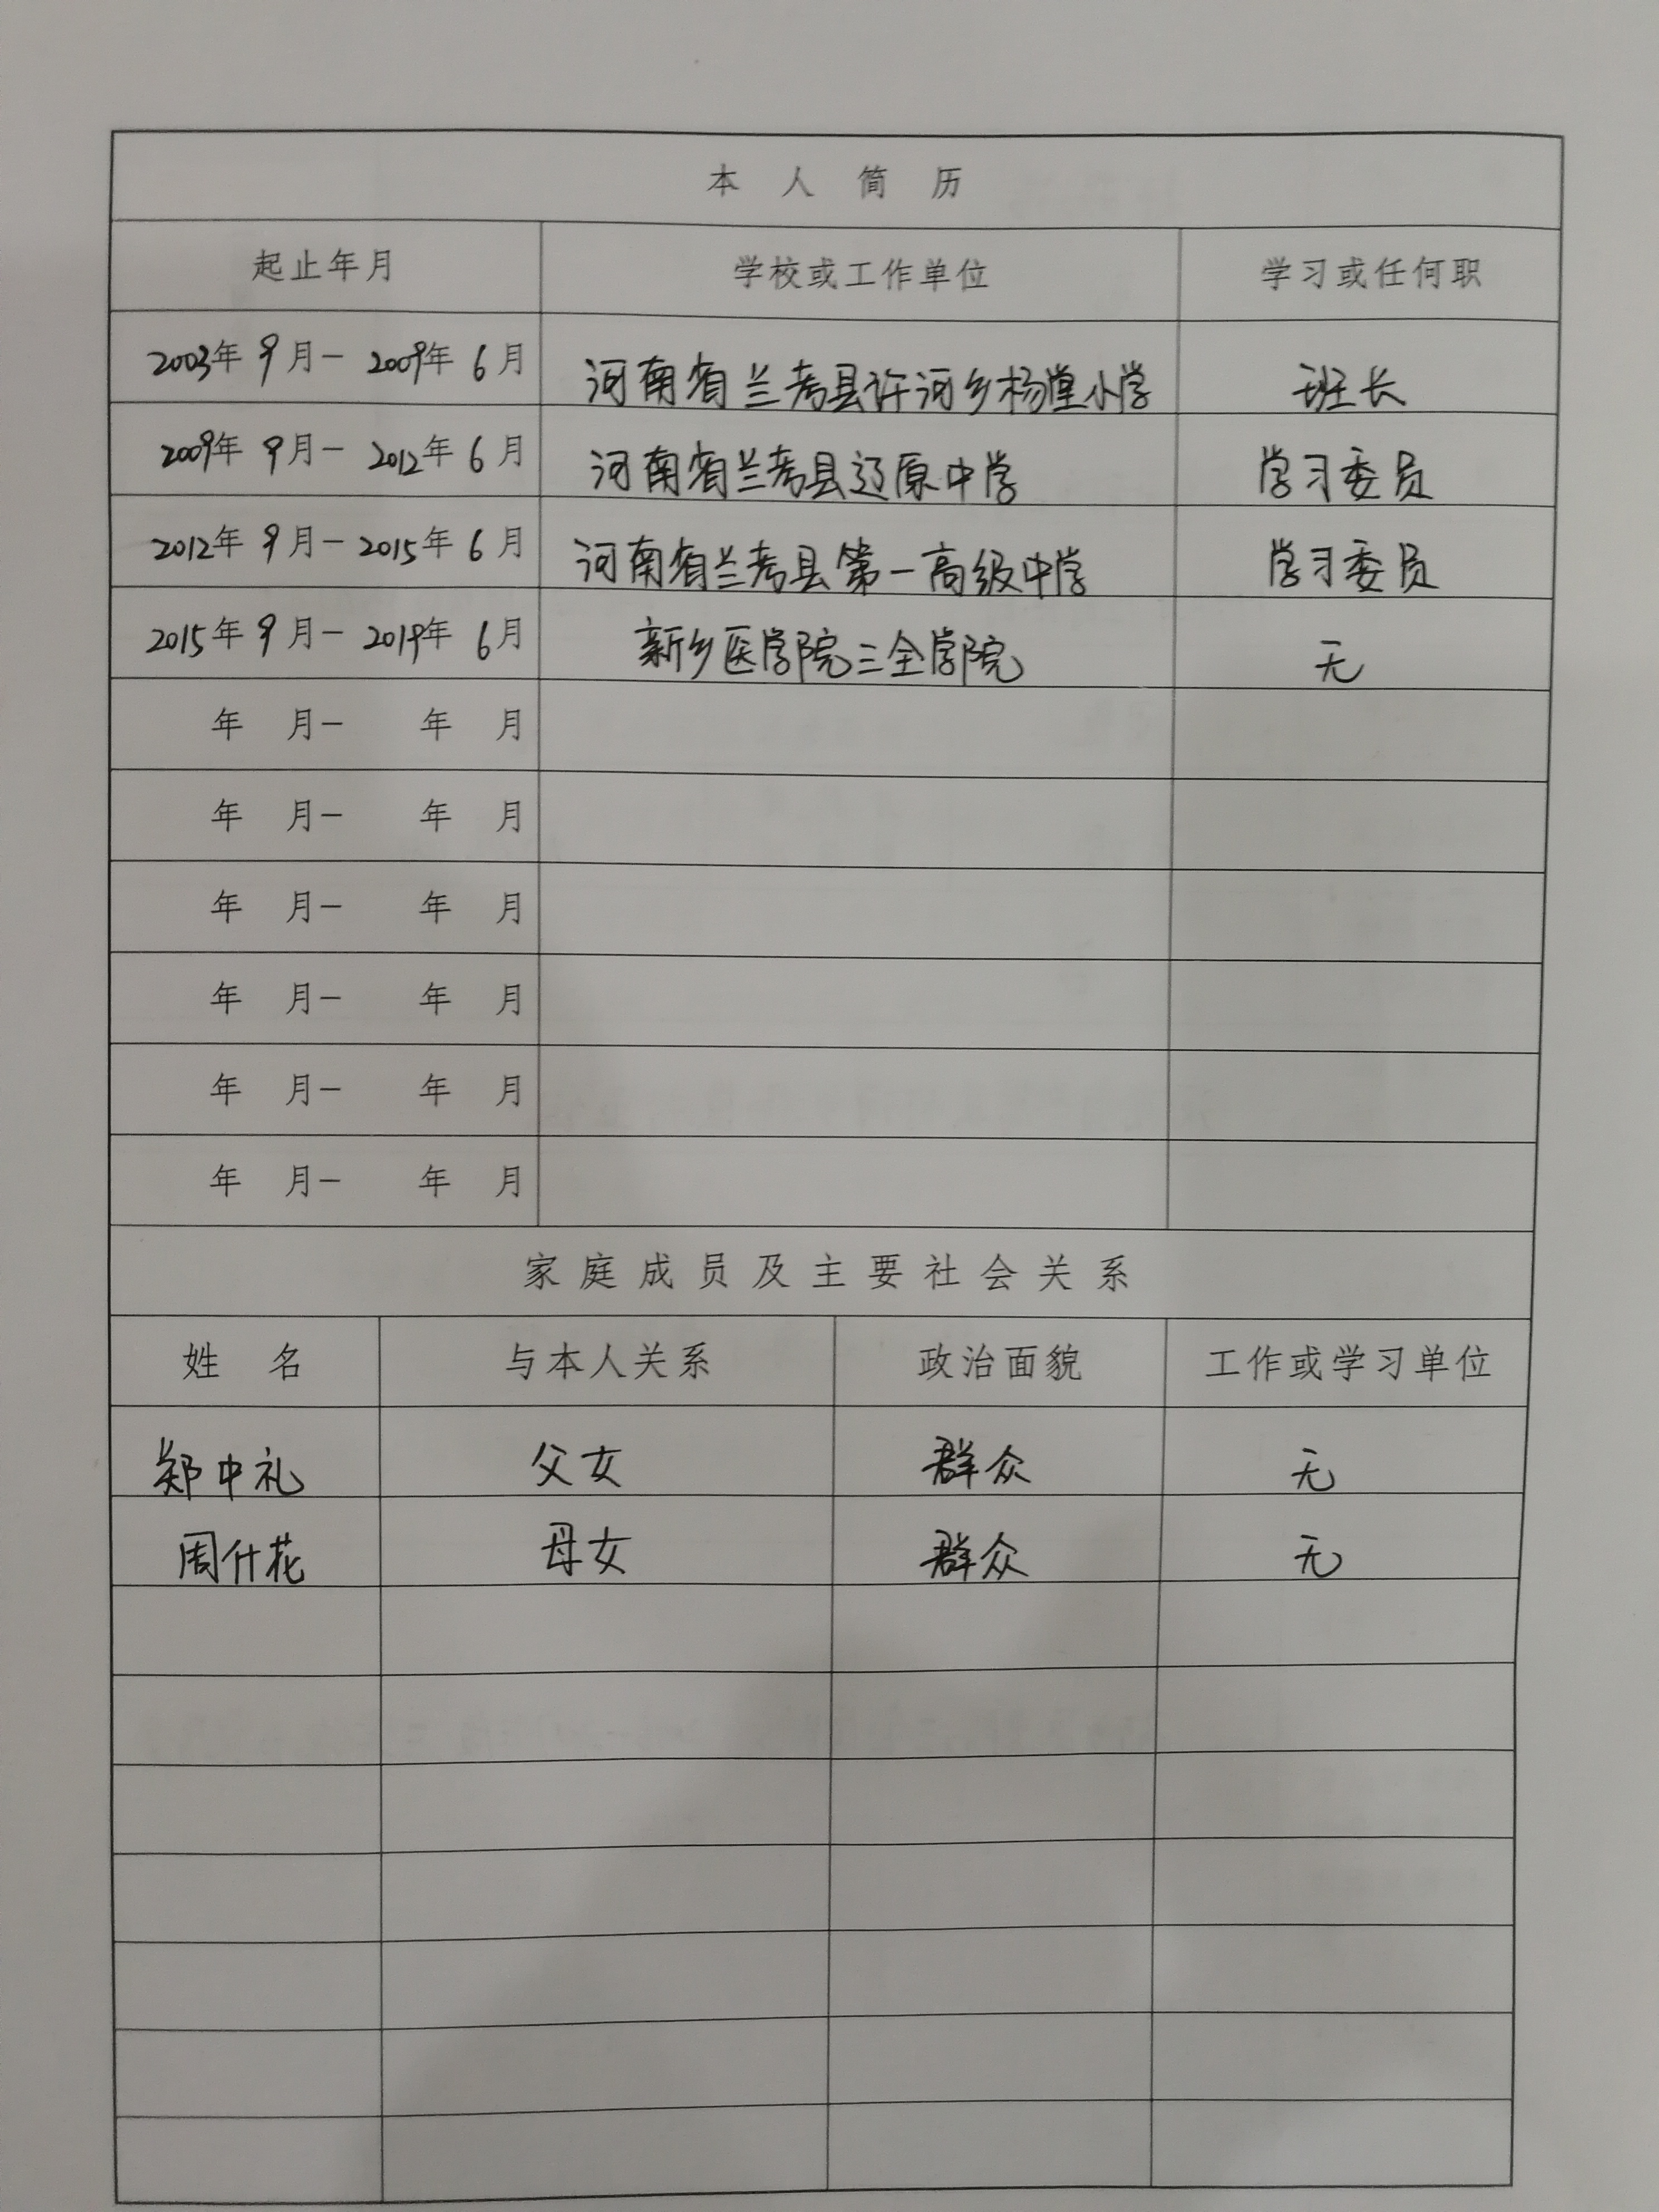 本人简历
起止年月 学校或工作单位 学习或任何职
2003年9月－2009年6月 河南省兰考县许河乡杨堂小学 班长
2009年9月－2012年6月 河南省兰考县辽原中学 学习委员
2012年9月－2015年6月 河南省兰考县第一高级中学 学习委员
2015年9月－2019年6月 新乡医学院三全学院 无
年 月－ 年 月
年 月－ 年 月
年 月－ 年 月
年 月－ 年 月
年 月－ 年 月
年 月－ 年 月
家庭成员及主要社会关系
姓名 与本人关系 政治面貌 工作或学习单位
郑中礼 父女 群众 无
周什花 母女 群众 无